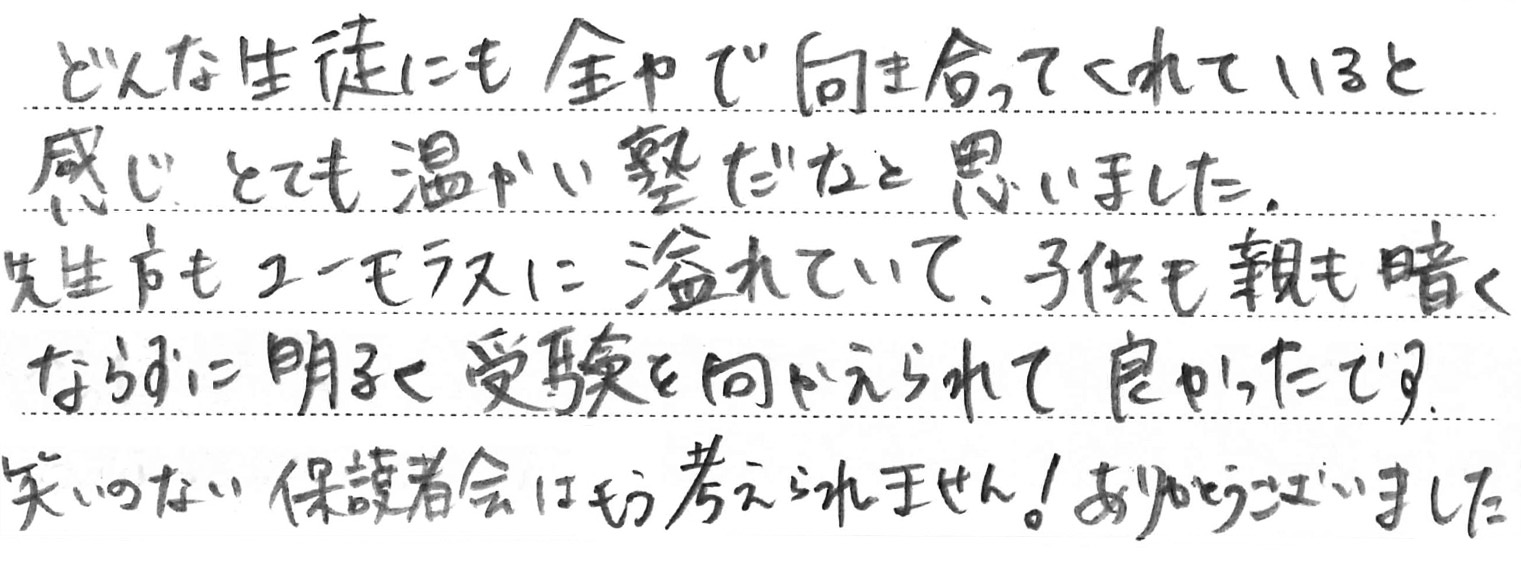 どんな生徒にも全力で向き合ってくれていると
感じ とても温かい塾だなと思いました。
先生方もユーモラスに溢れていて、子供も親も暗く
ならずに明るく受験を向かえられて良かったです。
笑いのない保護者会はもう考えられません！ありがとうございました